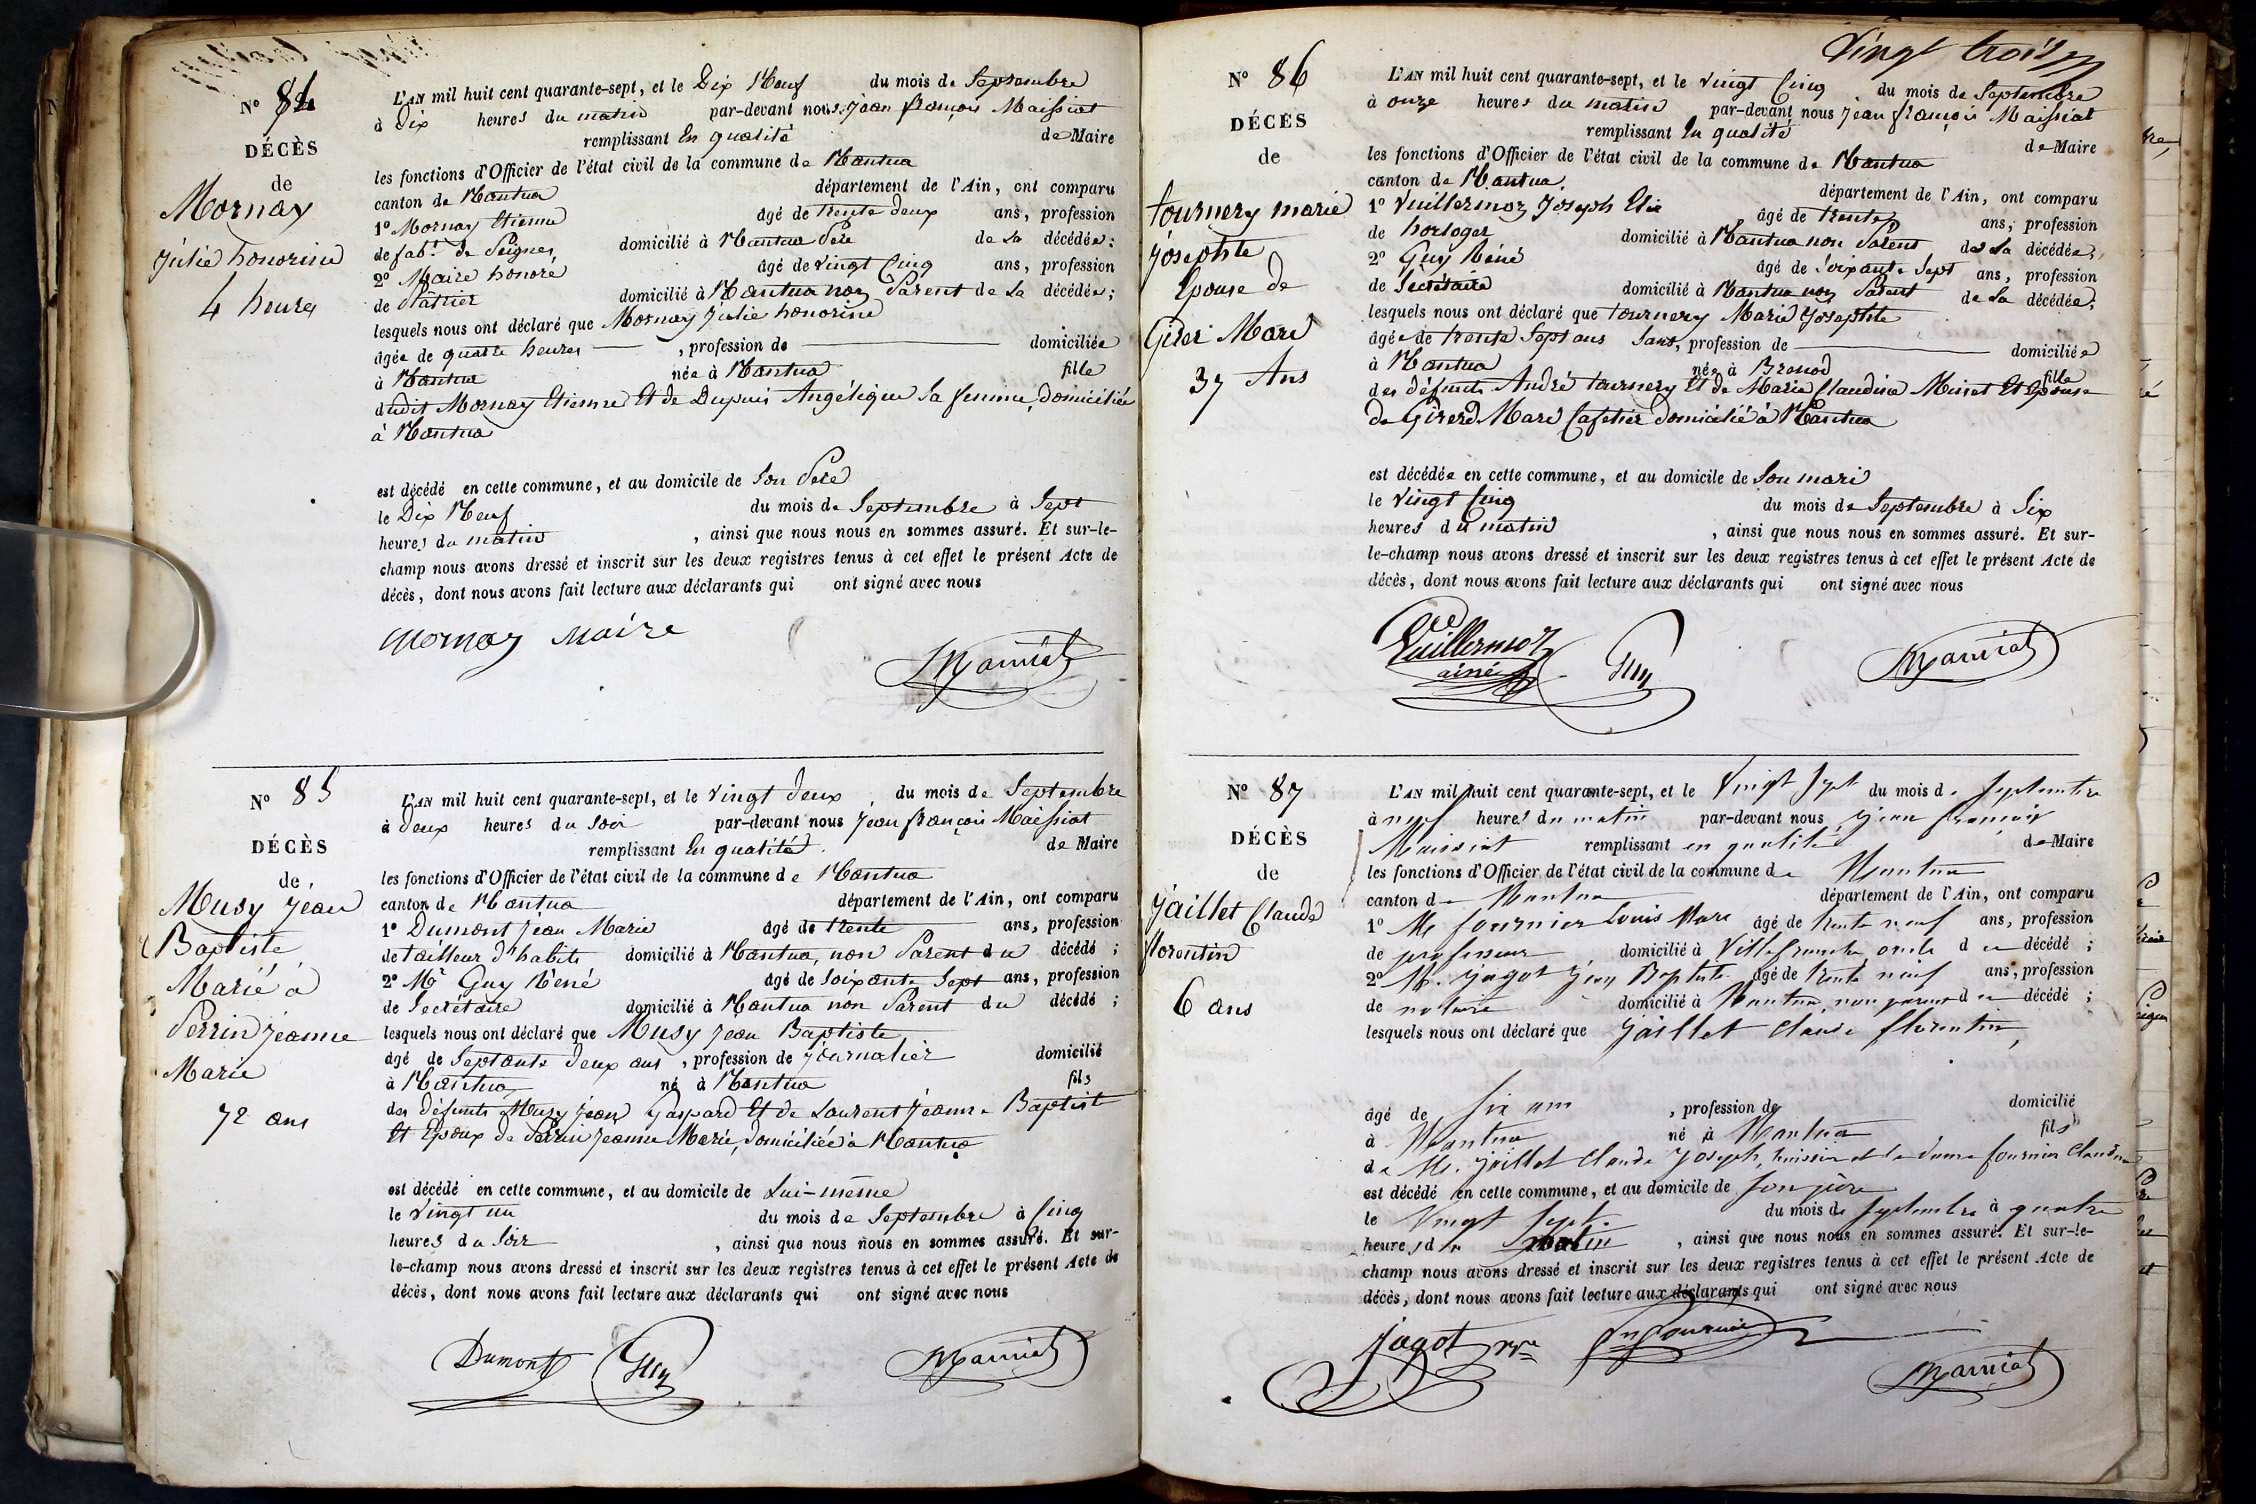 N° 84
DÉCÈS
de
Mornay
Julie honorine
4 heures
L'AN mil huit cent quarante-sept, et le Dix Neuf du mois de Septembre
à Dix heures du matin par-devant nous Jean françois Maissiat
remplissant En qualité de Maire
les fonctions d'Officier de l'état civil de la commune de Nantua
canton de Nantua département de l'Ain, ont comparu
1° Mornay Etienne âgé de trente deux ans, profession
de fab.t de Peignes domicilié à Nantua Père de La décédée;
2° Maire honoré âgé de vingt Cinq ans, profession
de Plâtrier domicilié à Nantua non Parent de La décédée;
lesquels nous ont déclaré que Mornay Julie honorine
âgée de quatre heures, profession de domiciliée
à Nantua née à Nantua fille
dudit Mornay Etienne Et de Dupuis Angélique Sa femme, domiciliée
à Nantua
est décédé en cette commune, et au domicile de Son Père
le Dix Neuf du mois de Septembre à Sept
heures du matin, ainsi que nous nous en sommes assuré. Et sur-le-
champ nous avons dressé et inscrit sur les deux registres tenus à cet effet le présent Acte de
décès, dont nous avons fait lecture aux déclarants qui ont signé avec nous
Mornay Maire Maissiat
N° 85
DÉCÈS
de
Musy Jean
Baptiste
Marié à
Perrin Jeanne
Marie
72 ans
L'AN mil huit cent quarante-sept, et le vingt deux du mois de Septembre
à deux heures du soir par-devant nous Jean françois Maissiat
remplissant En qualité de Maire
les fonctions d'Officier de l'état civil de la commune de Nantua
canton de Nantua département de l'Ain, ont comparu
1° Dumont Jean Marie âgé de trente ans, profession
de tailleur d'habits domicilié à Nantua, non Parent du décédé;
2° Mr Guy Réné âgé de Soixante Sept ans, profession
de Secrétaire domicilié à Nantua non Parent du décédé;
lesquels nous ont déclaré que Musy Jean Baptiste
âgé de Septante deux ans, profession de Journalier domicilié
à Nantua né à Nantua fils
des défunts Musy Jean Gaspard Et de Laurent Jeanne Baptist
Et Epoux de Perrin Jeanne Marie, domiciliée à Nantua
est décédé en cette commune, et au domicile de Lui-même
le vingt un du mois de Septembre à Cinq
heures du Soir, ainsi que nous nous en sommes assuré. Et sur-
le-champ nous avons dressé et inscrit sur les deux registres tenus à cet effet le présent Acte de
décès, dont nous avons fait lecture aux déclarants qui ont signé avec nous
Dumont Guy Maissiat
Vingt trois
N° 86
DÉCÈS
de
tournery marie
Josephte
Epouse de
Girer Marc
37 Ans
L'AN mil huit cent quarante-sept, et le vingt Cinq du mois de Septembre
à onze heures du matin par-devant nous Jean françois Maissiat
remplissant En qualité de Maire
les fonctions d'Officier de l'état civil de la commune de Nantua
canton de Nantua. département de l'Ain, ont comparu
1° Vuillermoz Joseph Elie âgé de trente ans, profession
de horloger domicilié à Nantua non Parent de La décédée;
2° Guy Réné âgé de Soixante Sept ans, profession
de Secrétaire domicilié à Nantua non Parent de La décédée;
lesquels nous ont déclaré que tournery Marie Josephte
âgée de trente Sept ans Sans, profession de domiciliée
à Nantua née à Brenod fille
des défunts André tournery Et de Marie Claudine Musset Et Epouse
de Girerd Marc Cafetier domicilié à Nantua
est décédée en cette commune, et au domicile de Son mari
le vingt Cinq du mois de Septembre à Six
heures du matin, ainsi que nous nous en sommes assuré. Et sur-
le-champ nous avons dressé et inscrit sur les deux registres tenus à cet effet le présent Acte de
décès, dont nous avons fait lecture aux déclarants qui ont signé avec nous
Vuillermoz
ainé Guy Maissiat
N° 87
DÉCÈS
de
Jaillet Claude
florentin
6 ans
L'AN mil huit cent quarante-sept, et le Vingt Sept du mois de Septembre
à neuf heures du matin par-devant nous Jean françois
Maissiat remplissant en qualité de Maire
les fonctions d'Officier de l'état civil de la commune de Nantua
canton de Nantua département de l'Ain, ont comparu
1° Mr fournier Louis Marc âgé de trente neuf ans, profession
de professeur domicilié à Villefranche, oncle du décédé;
2° M. Jagot Jean Baptiste âgé de trente neuf ans, profession
de notaire domicilié à Nantua, non parent du décédé;
lesquels nous ont déclaré que Jaillet Claude florentin,
âgé de Six ans, profession de domicilié
à Nantua né à Nantua fils
de Mr. Jaillet Claude Joseph, huissier et de dame fournier Claudine
est décédé en cette commune, et au domicile de Son père
le Vingt Sept du mois de Septembre à quatre
heures du matin, ainsi que nous nous en sommes assuré. Et sur-le-
champ nous avons dressé et inscrit sur les deux registres tenus à cet effet le présent Acte de
décès, dont nous avons fait lecture aux déclarants qui ont signé avec nous
Jagot nre Fournier
Maissiat